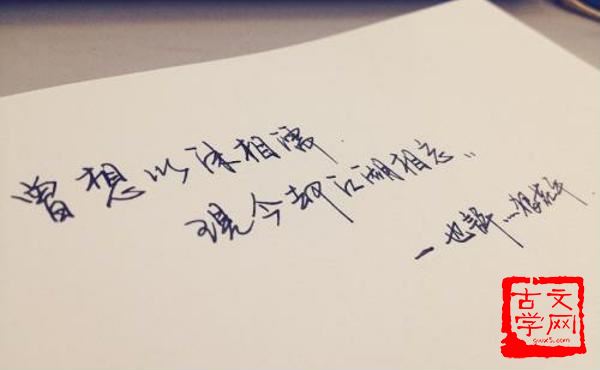 曾想以沫相濡.
现今却江湖相忘..
一也許...
古文
学网
gwx5.com